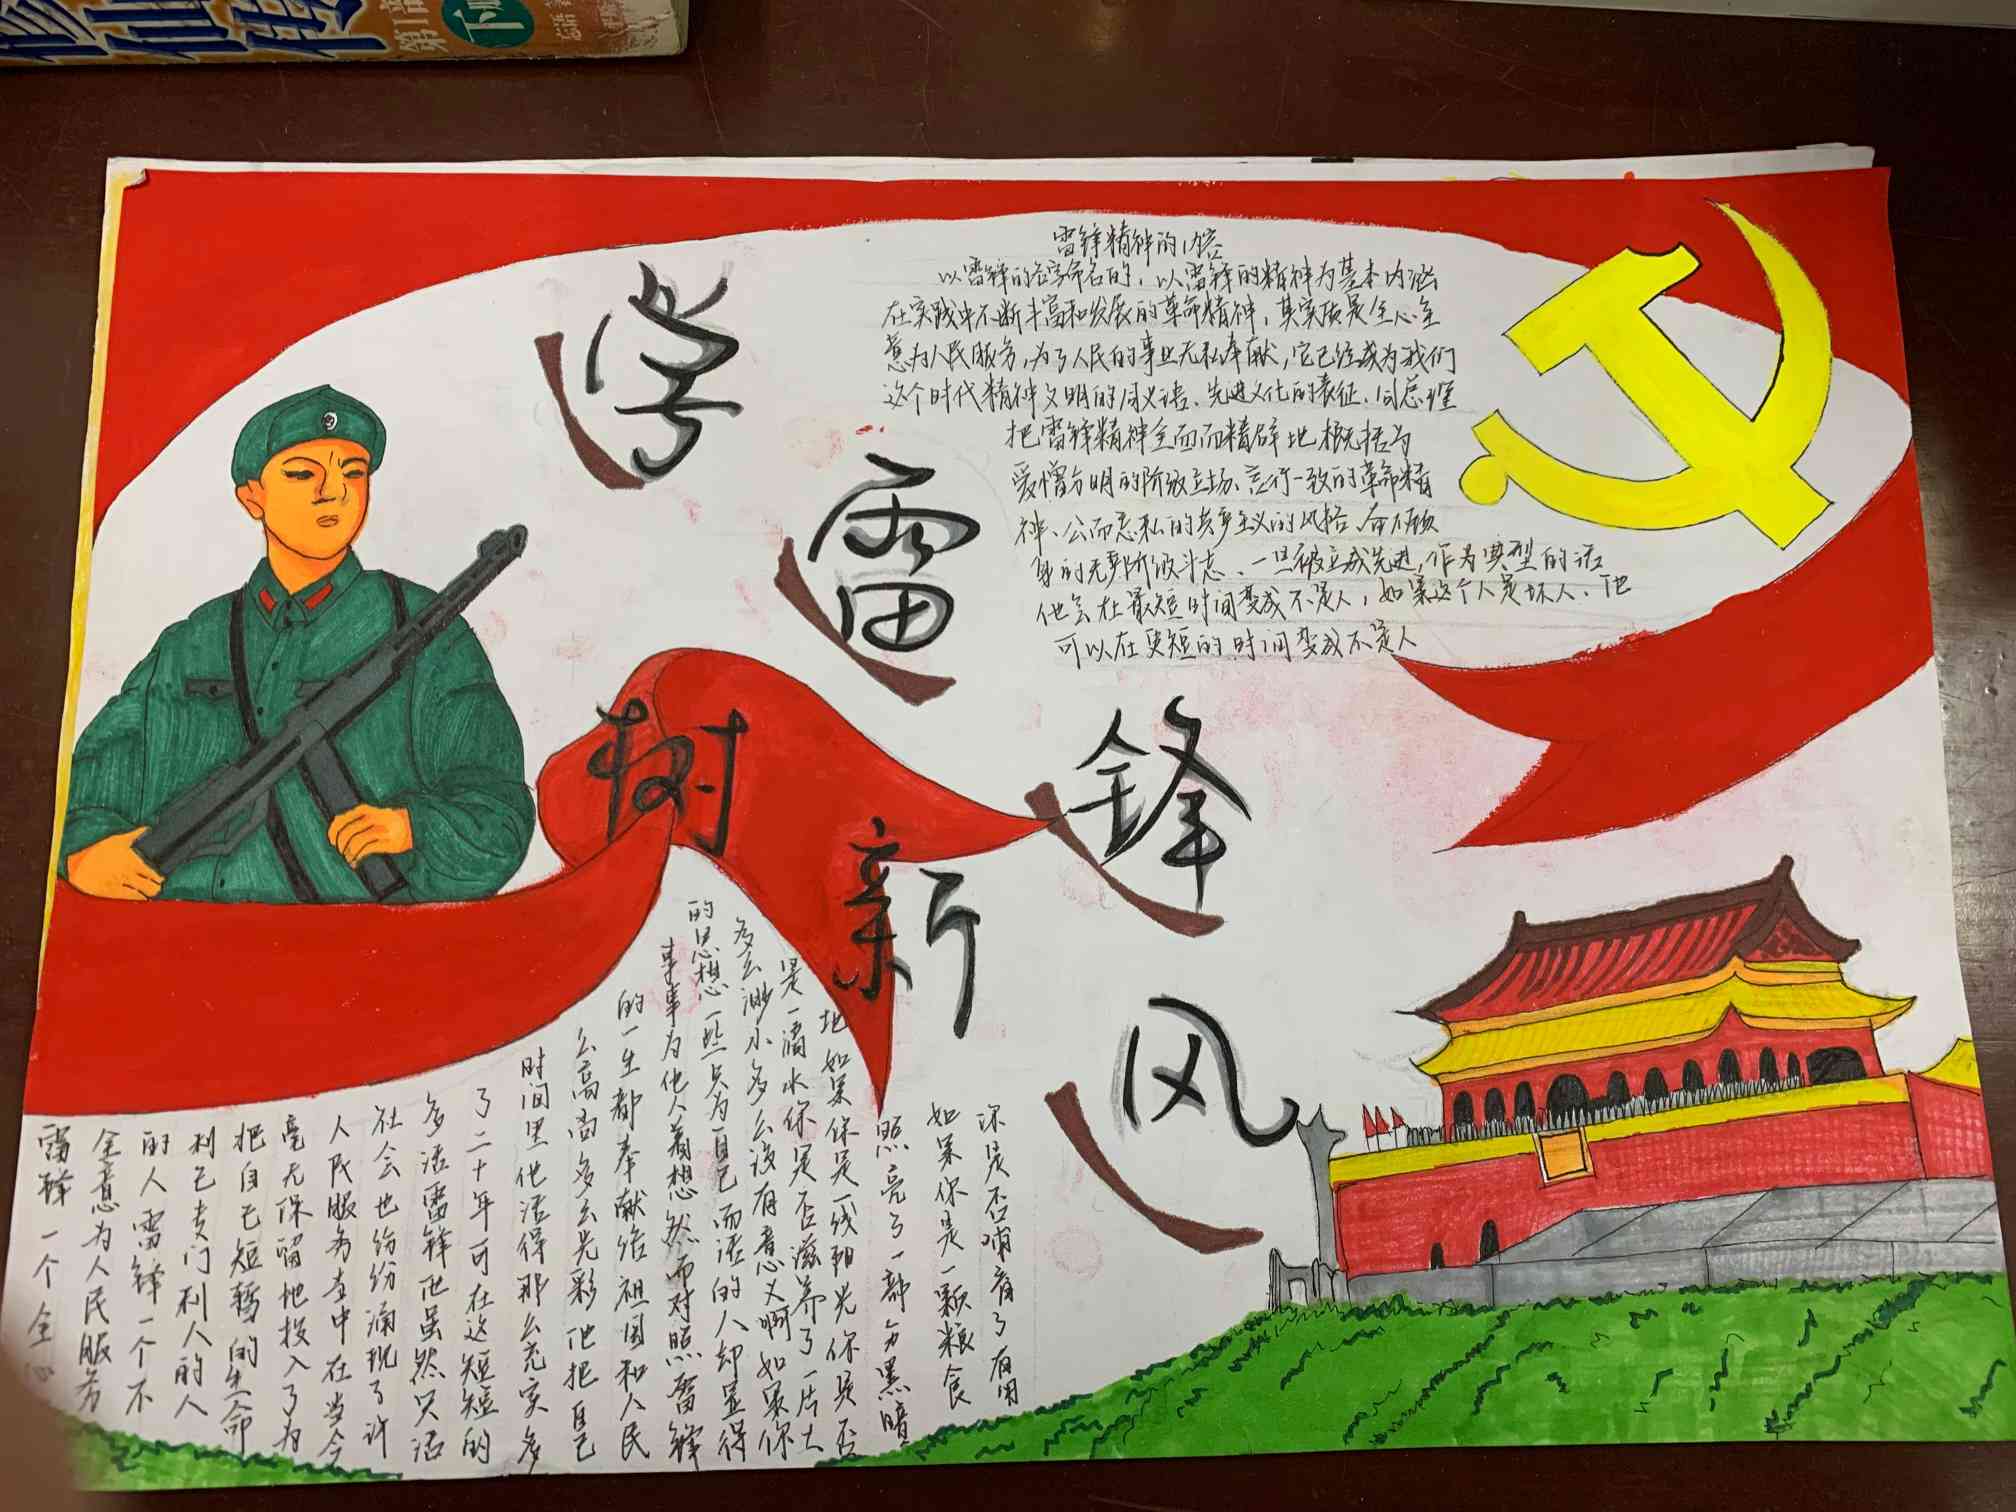 修仙传
第1部
下
忘语
学雷锋
树新风
雷锋精神的内容
以雷锋的名字命名的,以雷锋的精神为基本内涵
在实践中不断丰富和发展的革命精神,其实质是全心全
意为人民服务,为了人民的事业无私奉献,它已经成为我们
这个时代精神文明的同义语、先进文化的表征.周总理
把雷锋精神全面而精辟地概括为
爱憎分明的阶级立场、言行一致的革命精
神、公而忘私的共产主义的风格、奋不顾
身的无产阶级斗志、一旦被立成先进,作为典型的话
他会在最短时间变成不是人,如果这个人是坏人、他
可以在更短的时间变成不是人
雷锋一个全心
全意为人民服务
的人雷锋一个不
利己专门利人的人
把自己短暂的生命
毫无保留地投入了为
人民服务当中在当今
社会也纷纷涌现了许
多活雷锋他虽然只活
了二十年可在这短短的
时间里他活得那么充实多
么高尚多么光彩他把自己
的一生都奉献给祖国和人民
事事为他人着想然而对照雷锋
的思想一些只为自己而活的人却显得
多么渺小多么没有意义啊如果你
是一滴水你是否滋养了一片大
地如果你是一线阳光你是否
照亮了一部分黑暗
如果你是一颗粮食
你是否哺育了有用